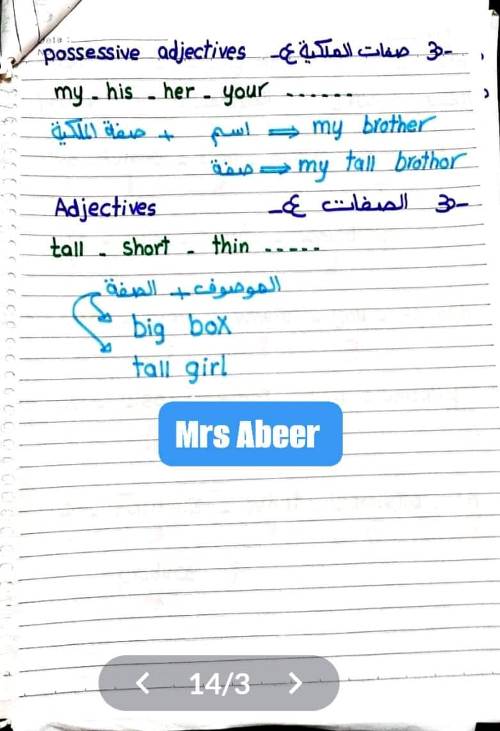 possessive adjectives -ع صفات الملكية -3
my - his - her - your ......
صفة الملكية + اسم ⇒ my brother
صفة ⇒ my tall brothor
Adjectives -ع الصفات -3
tall - short - thin .....
الصفة + الموصوف
big box
tall girl
Mrs Abeer
14/3